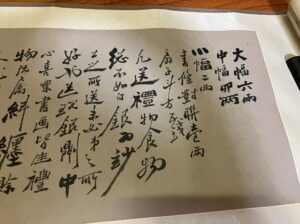 大幅六兩
中幅四兩
小幅二兩
書條對聯壹兩
扇子斗方五錢
凡送禮物食物
總不如白銀為妙
公之所送未必弟之所
好也送現銀則中
心喜樂書画皆佳禮
物既屬糾纏賒